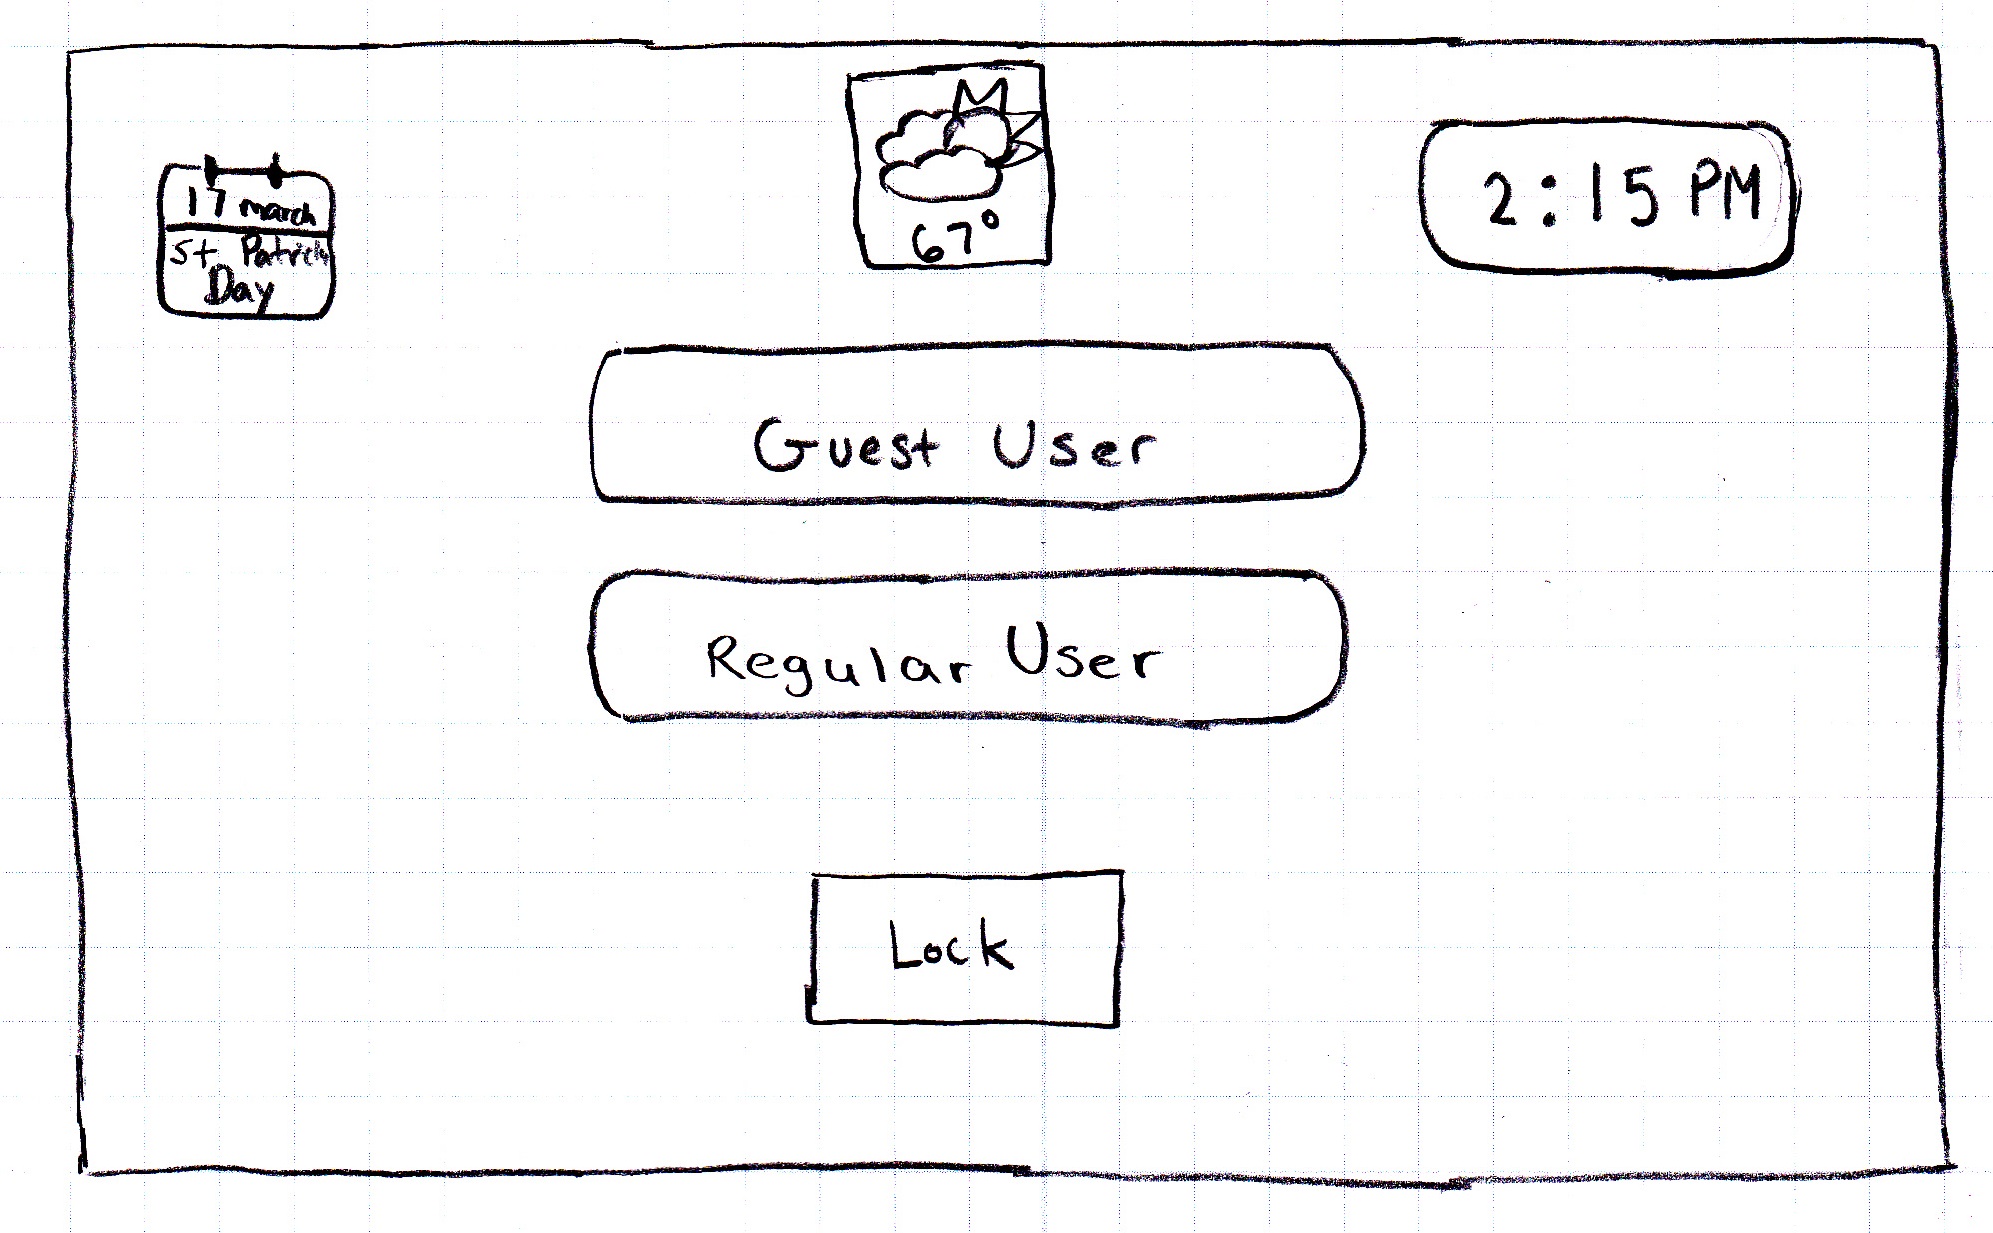 17 march
St Patrick
Day
67°
2:15 PM
Guest User
Regular User
Lock